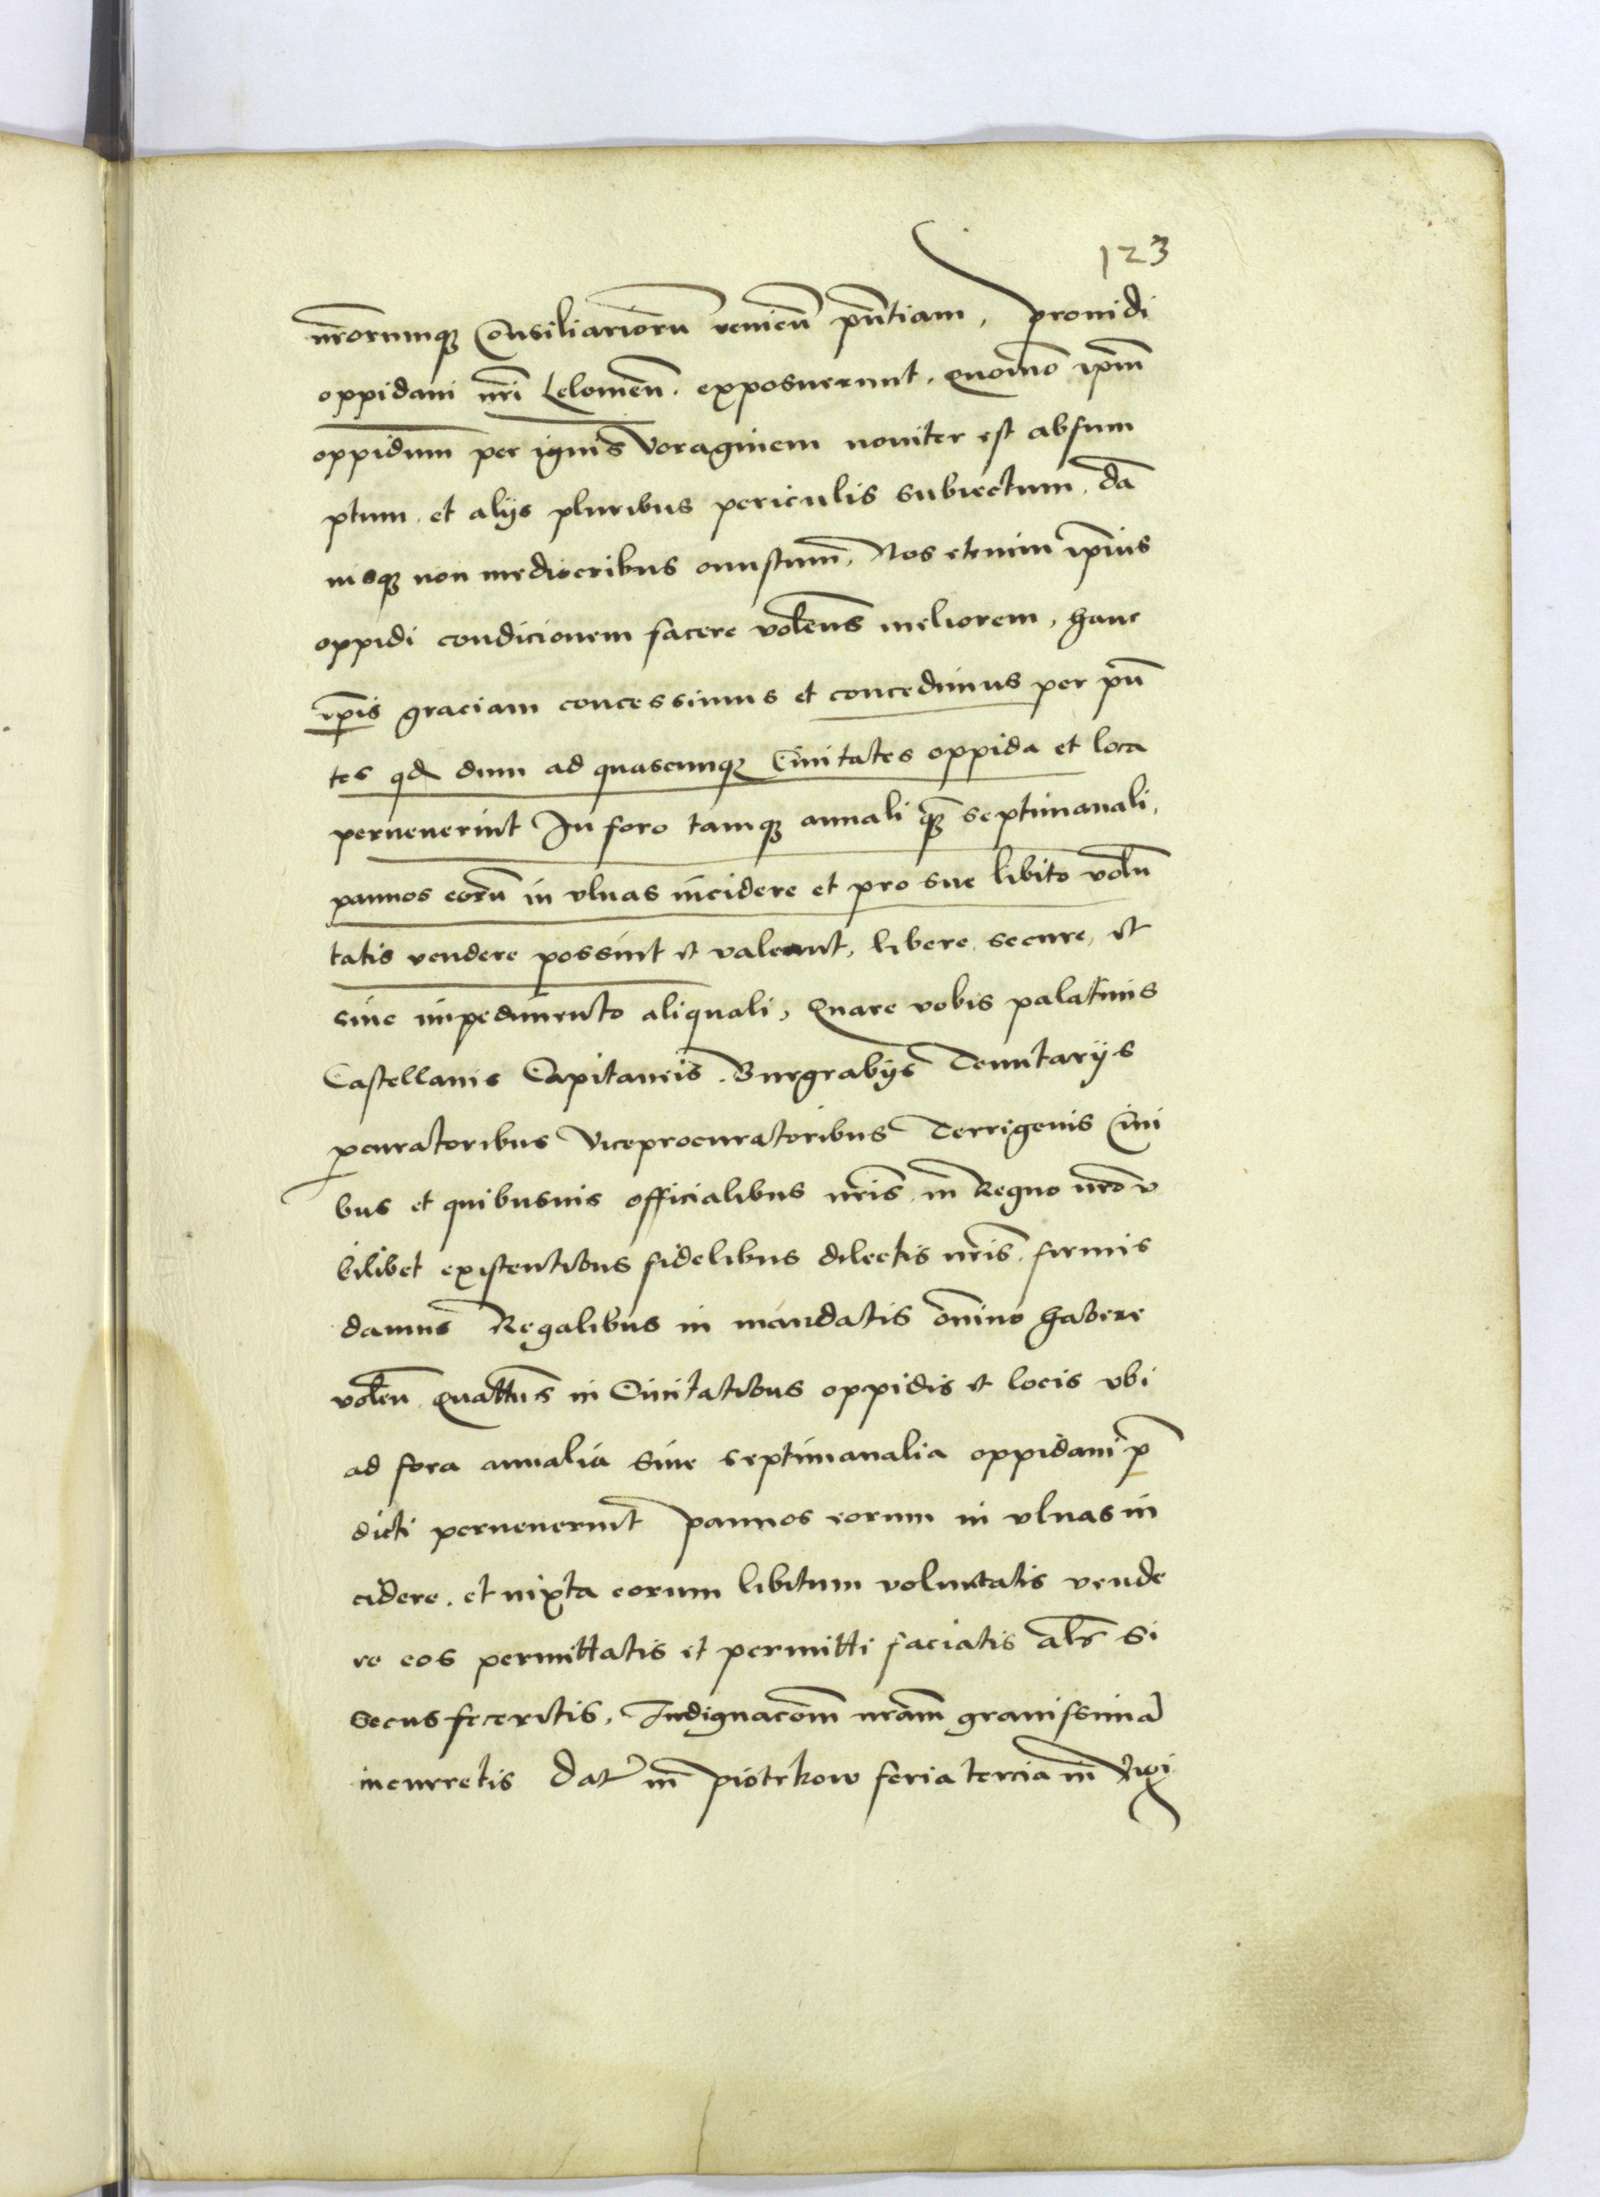 123
nr̄orumq₃ Consiliarioru̅ venieu̅ pn̄tiam, prouidi
oppidani nr̄i Lelouien̄. exposuerunt. quom̄o ip̄m
oppidum per ignis voraginem nouiter est absum
ptum et alijs pluribus periculis subiectum. da̅
nisq₃ non mediocribus onustum, Nos etenim ip̄ius
oppidi condicionem facere volen̄s meliorem, hanc
ip̄is graciam concessimus et concedimus per pn̄
tes qd̄ dum ad quascunq₃ Ciuitates oppida et loca
peruenerint In foro tamq₃ annali q̄₃ septimanali,
pannos eoru̅ in vlnas incidere et pro sue libito volu̅
tatis vendere possint et valeant, libere secure, et
sine impedimento aliquali, Quare vobis palatinis
Castellanis Capitaneis. Burgrabijs Tenutarijs
ꝓcuratoribus viceprocuratoribus Terrigenis Ciui
bus et quibusuis officialibus nr̄is in Regno nr̄o v
bilibet existentibus fidelibus dilectis nr̄is. firmis
damus Regalibus in mandatis om̄ino habere
volen̄ quatt̄ns in Ciuitatibus oppidis et locis vbi
ad fora annalia siue septimanalia oppidani p̄
dicti peruenerint pannos eorum in vlnas in
cidere. et iuxta eorum libitum voluntatis vende
re eos permittatis et permitti faciatis al̄s si
secus feceritis. Indignacōm nr̄am grauissima̅
incurretis Dat̄ in piotrkow feria tercia in